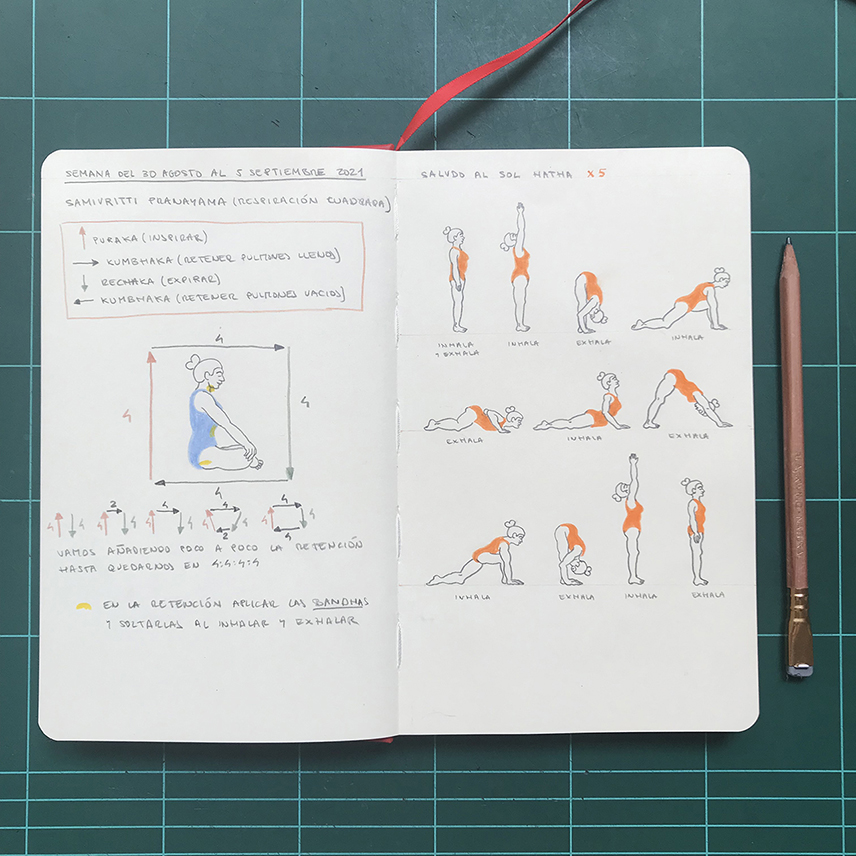 SEMANA DEL 30 AGOSTO AL 5 SEPTIEMBRE 2021
SAMIVRITTI PRANAYAMA (RESPIRACIÓN CUADRADA)
PURAKA (INSPIRAR)
KUMBHAKA (RETENER PULMONES LLENOS)
RECHAKA (EXPIRAR)
KUMBHAKA (RETENER PULMONES VACIOS)
4
4 4
4
4 4 4 2 4 4 4 4 4 4 4 2 4 4 4 4
VAMOS AÑADIENDO POCO A POCO LA RETENCIÓN
HASTA QUEDARNOS EN 4:4:4:4
EN LA RETENCIÓN APLICAR LAS BANDHAS
Y SOLTARLAS AL INHALAR Y EXHALAR
SALUDO AL SOL HATHA x5
INHALA Y EXHALA
INHALA
EXHALA
INHALA
EXHALA
INHALA
EXHALA
INHALA
EXHALA
INHALA
EXHALA